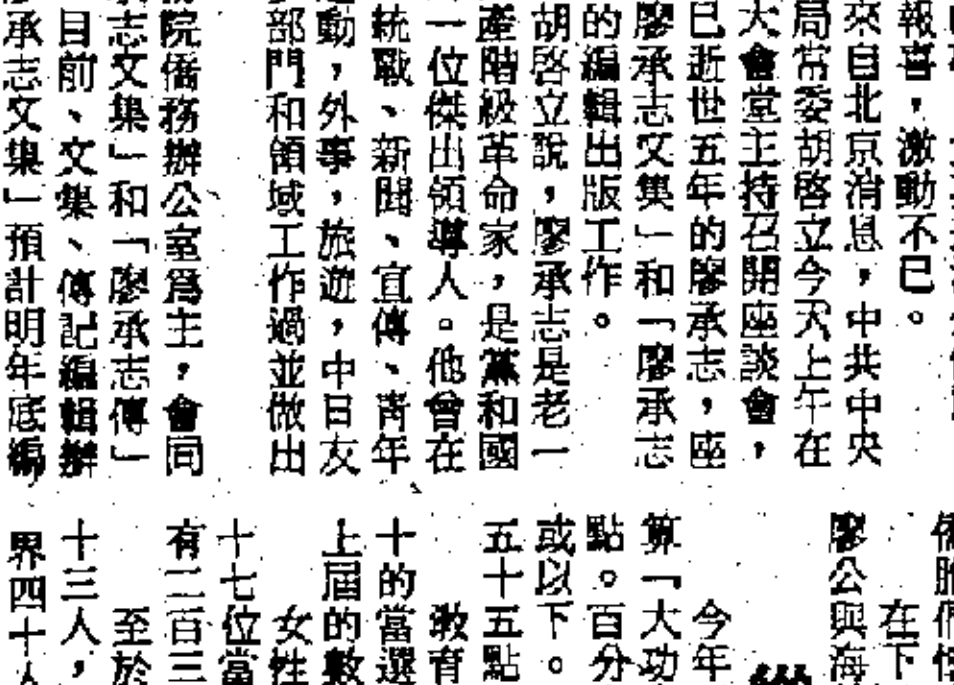 報喜，激動不已。
來自北京消息，中共中央
局常委胡啓立今天上午在
大會堂主持召開座談會，
已逝世五年的廖承志，座
廖承志文集」和「廖承志
的編輯出版工作。
胡啓立說，廖承志是老一
產階級革命家，是黨和國
一位傑出領導人。他曾在
統戰、新聞、宣傳、青年
動，外事，旅遊，中日友
部門和領域工作過並做出
院僑務辦公室爲主，會同
志文集」和「廖承志傳」
目前、文集、傳記編輯辦
承志文集」預計明年底編
僑胞們
在下
廖公與海
今年
算「大功
點。百分
或以下。
五十五點
教育
十的當選
上屆的數
女性
十七位當
有二百三
至於
十三人，
界四十人